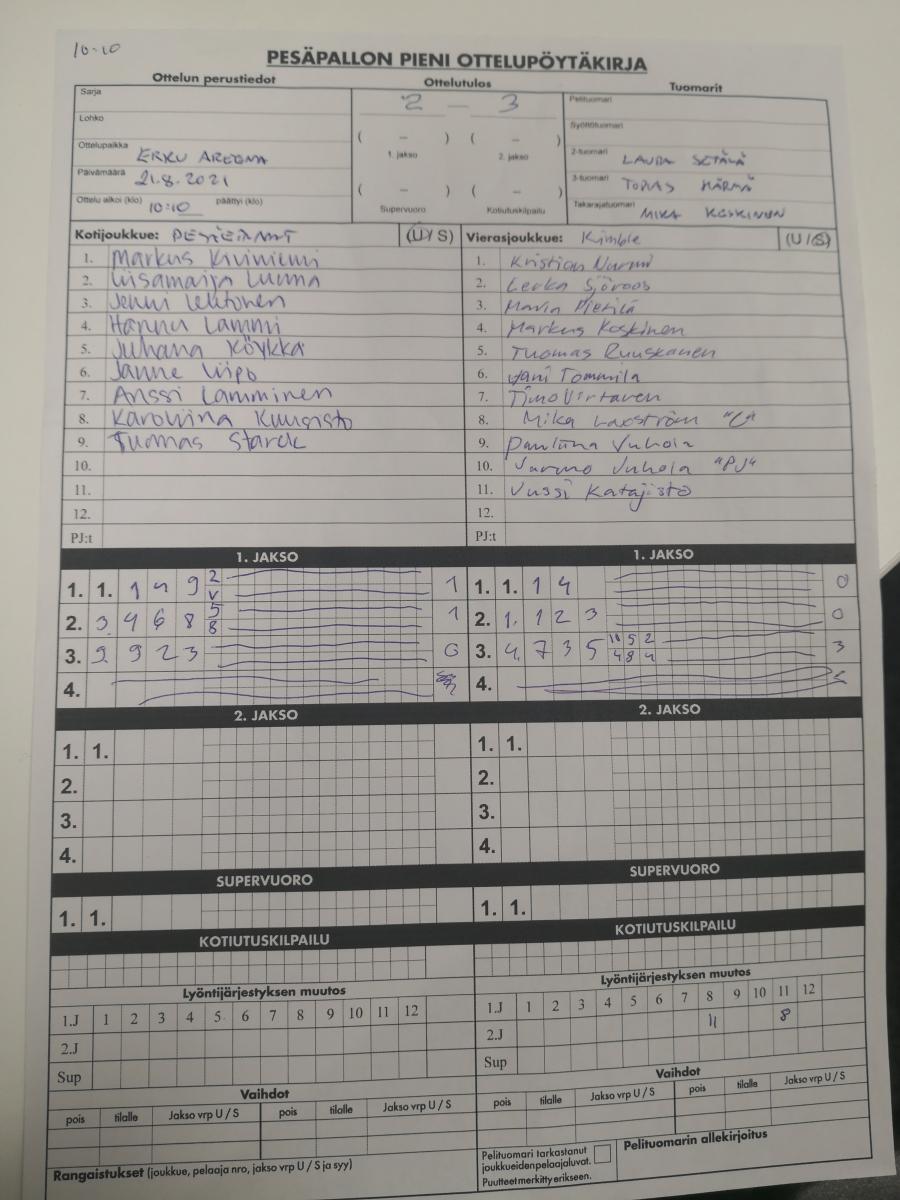 10-10
PESÄPALLON PIENI OTTELUPÖYTÄKIRJA
Ottelun perustiedot Ottelutulos Tuomarit
Sarja
Lohko
Ottelupaikka ERKU AREENA
Päivämäärä 21.8.2021
Ottelu alkoi (klo) 10:10 päättyi (klo)
2 — 3
( – ) ( – )
1. jakso 2. jakso
( – ) ( – )
Supervuoro Kotiutuskilpailu
Pelituomari
Syöttötuomari
2-tuomari LAURA SETÄLÄ
3-tuomari TOMAS HÄRMÄ
Takarajatuomari MIKA KOSKINEN
Kotijoukkue: (U/S)
1. Markus Kiviniemi
2. Liisamaija Luoma
3. Jenni Lehtonen
4. Hannu Lammi
5. Juhana Köykkä
6. Janne Viipo
7. Anssi Lamminen
8. Karoliina Kuusisto
9. Tuomas Starck
10.
11.
12.
PJ:t
Vierasjoukkue: Kimble (U/S)
1. Kristian Nurmi
2. Sjöroos
3. Maria Pietilä
4. Markus Koskinen
5. Tuomas Ruuskanen
6. Jani Tommila
7. Timo Virtanen
8. Mika "C"
9. Pauliina Juhola
10. Jarmo Juhola "PJ"
11. Jussi Katajisto
12.
PJ:t
1. JAKSO
1. 1. 1 4 9 2 V 1
2. 3. 4 6 8 5 8 1
3. 9. 9 2 3 0
4.
1. JAKSO
1. 1. 1 4 0
2. 1. 1 2 3 0
3. 4. 7 3 5 10 5 2 4 8 4 3
4.
2. JAKSO
1. 1.
2.
3.
4.
2. JAKSO
1. 1.
2.
3.
4.
SUPERVUORO
1. 1.
SUPERVUORO
1. 1.
KOTIUTUSKILPAILU
KOTIUTUSKILPAILU
Lyöntijärjestyksen muutos
1.J 1 2 3 4 5 6 7 8 9 10 11 12
2.J
Sup
Lyöntijärjestyksen muutos
1.J 1 2 3 4 5 6 7 8 9 10 11 12
2.J 11 8
Sup
Vaihdot
pois tilalle Jakso vrp U / S pois tilalle Jakso vrp U / S
Vaihdot
pois tilalle Jakso vrp U / S pois tilalle Jakso vrp U / S
Rangaistukset (joukkue, pelaaja nro, jakso vrp U / S ja syy)
Pelituomari tarkastanut
joukkueidenpelaajaluvat.
Puutteet merkitty erikseen.
Pelituomarin allekirjoitus